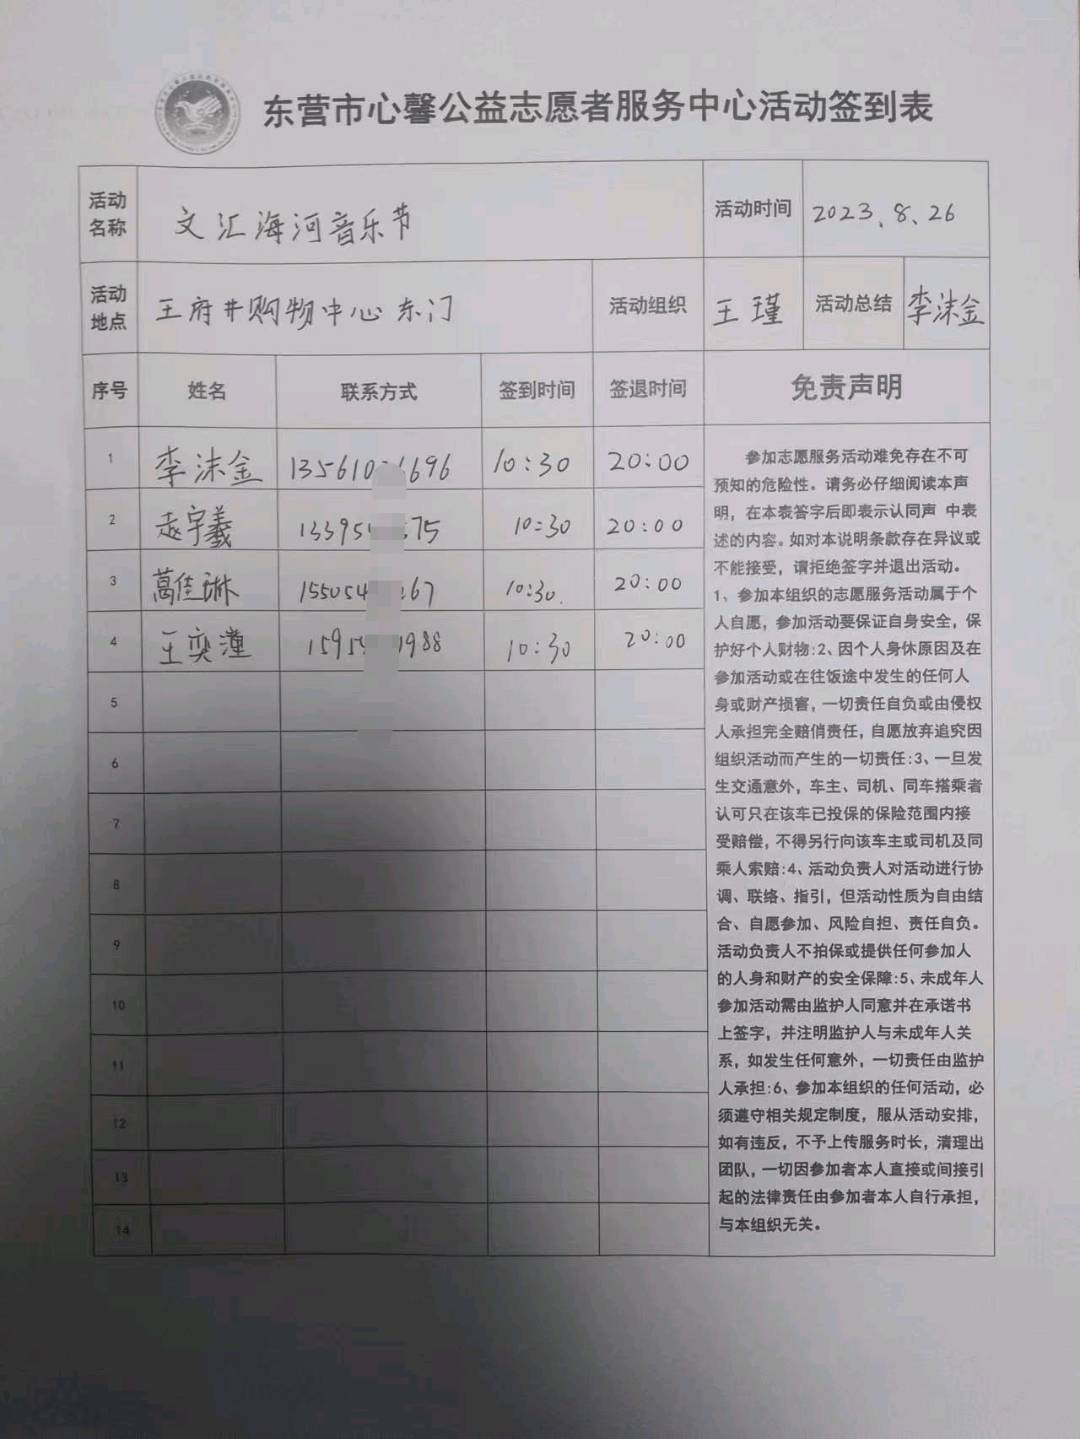 东营市心馨公益志愿者服务中心活动签到表
活动名称 文汇海河音乐节 活动时间 2023.8.26
活动地点 王府井购物中心东门 活动组织 王瑾 活动总结 李沫金
序号 姓名 联系方式 签到时间 签退时间 免责声明
1 李沫金 13561 1696 10:30 20:00
2 赵宇羲 13395 75 10:30 20:00
3 葛佳琳 155054 67 10:30. 20:00
4 王奕潼 1595 1988 10:30 20:00
5
6
7
8
9
10
11
12
13
14
参加志愿服务活动难免存在不可
预知的危险性。请务必仔细阅读本声
明，在本表签字后即表示认同声 中表
述的内容。如对本说明条款存在异议或
不能接受，请拒绝签字并退出活动。
1、参加本组织的志愿服务活动属于个
人自愿，参加活动要保证自身安全，保
护好个人财物:2、因个人身休原因及在
参加活动或在往饭途中发生的任何人
身或财产损害，一切责任自负或由侵权
人承担完全赔俏责任，自愿放弃追究因
组织活动而产生的一切责任:3、一旦发
生交通意外，车主、司机、同车搭乘者
认可只在该车已投保的保险范围内接
受赔偿，不得另行向该车主或司机及同
乘人索赔:4、活动负责人对活动进行协
调、联络、指引，但活动性质为自由结
合、自愿参加、风险自担、责任自负。
活动负责人不拍保或提供任何参加人
的人身和财产的安全保障:5、未成年人
参加活动需由监护人同意并在承诺书
上签字，并注明监护人与未成年人关
系，如发生任何意外，一切责任由监护
人承担:6、参加本组织的任何活动，必
须遵守相关规定制度，服从活动安排，
如有违反，不予上传服务时长，清理出
团队，一切因参加者本人直接或间接引
起的法律责任由参加者本人自行承担，
与本组织无关。